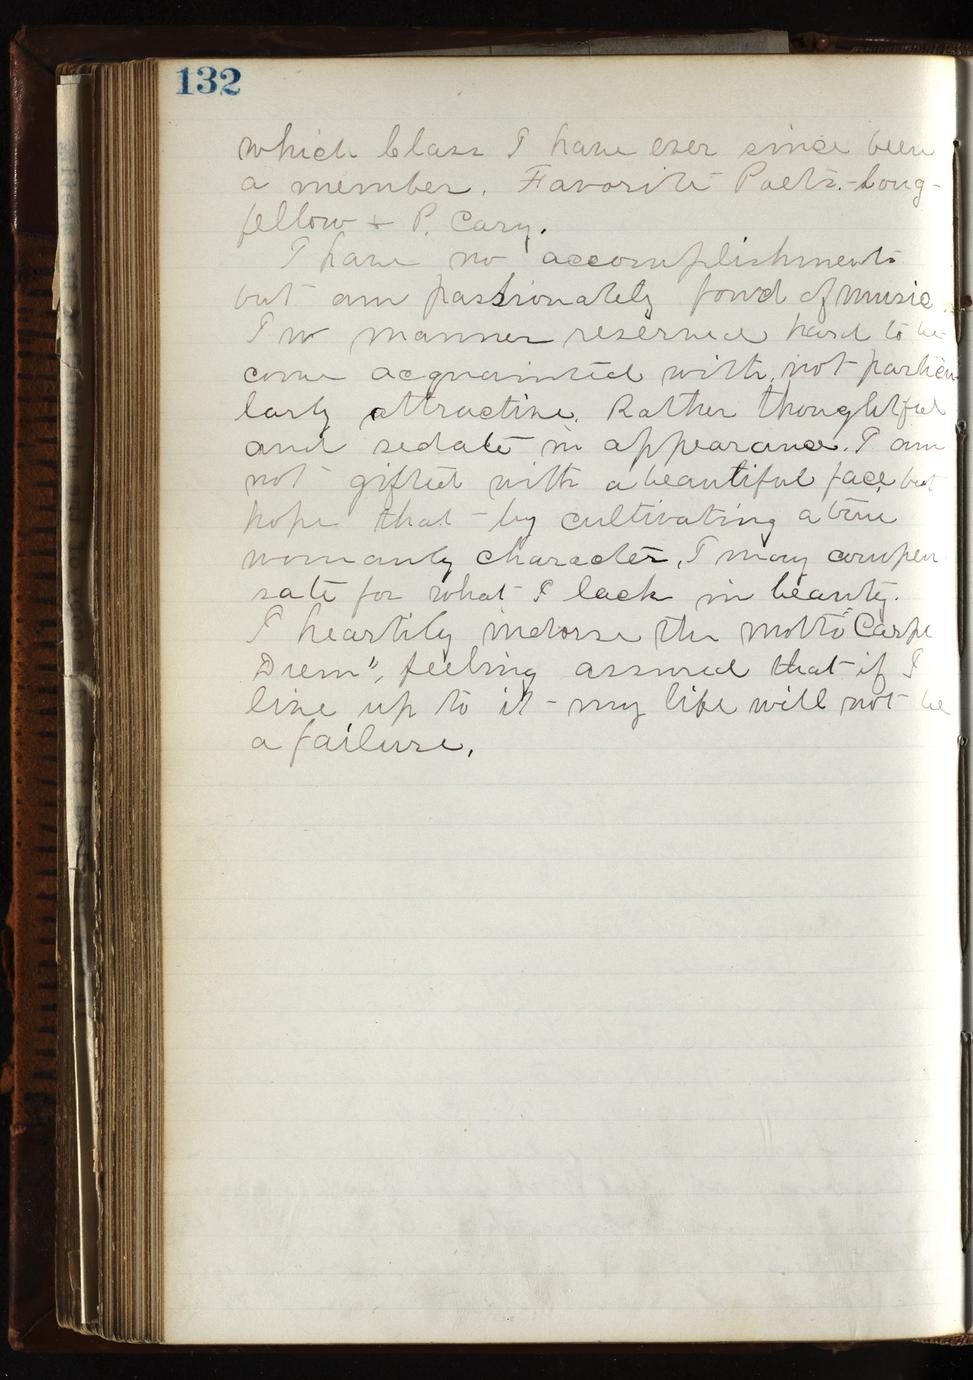 132
which Class I have ever since been
a member. Favorite Poets.-Long-
fellow + P. Cary.
I have no accomplishments
but am passionately fond of music
In manner reserved hard to be-
come acquainted with, not particu
larly attractive. Rather thoughtful
and sedate in appearance. I am
not gifted with a beautiful face, but
hope that - by cultivating a true
womanly character, I may compen-
sate for what I lack in beauty.
I heartily indorse the motto "Carpe
Diem", feeling assured that if I
live up to it - my life will not be
a failure.